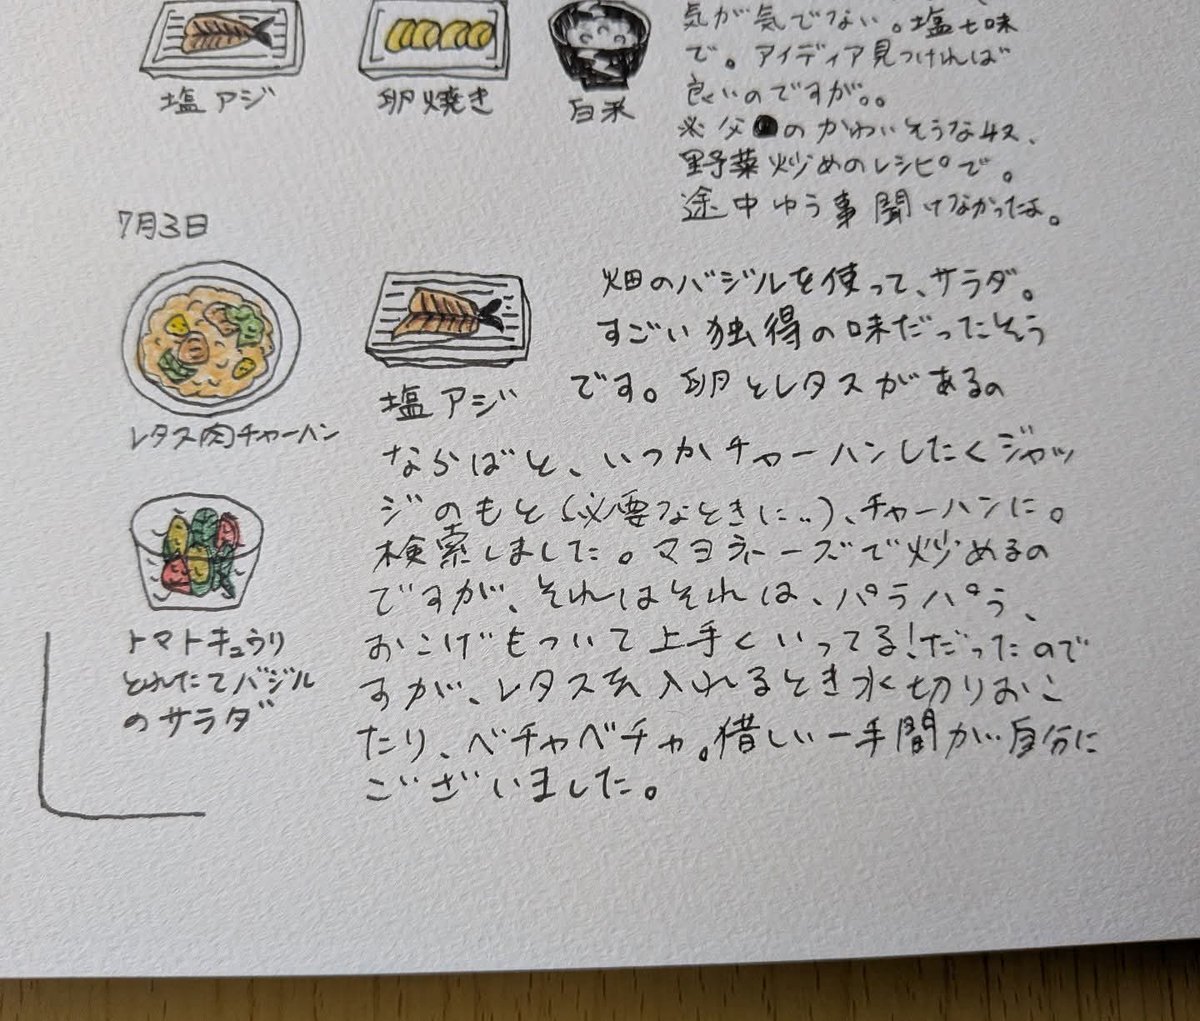 塩アジ
卵焼き
白米
気が気でない。塩七味
で。アイディア見つければ
良いのですが。。
※父●のかわいそうな
野菜炒めのレシピで。
途中ゆう事聞けなかったよ。
7月3日
レタス肉チャーハン
塩アジ
トマトキュウリ
とれたてバジル
のサラダ
畑のバジルを使って、サラダ。
すごい独得の味だったそう
です。卵とレタスがあるの
ならばと、いつかチャーハンしたくジャッ
ジのもと(必要なときに..)、チャーハンに。
検索しました。マヨネーズで炒めるの
ですが、それはそれは、パラパラ、
おこげもついて上手くいってる!だったので
すが、レタスを入れるとき水切りおこ
たり、ベチャベチャ。惜しい一手間が自分に
ございました。